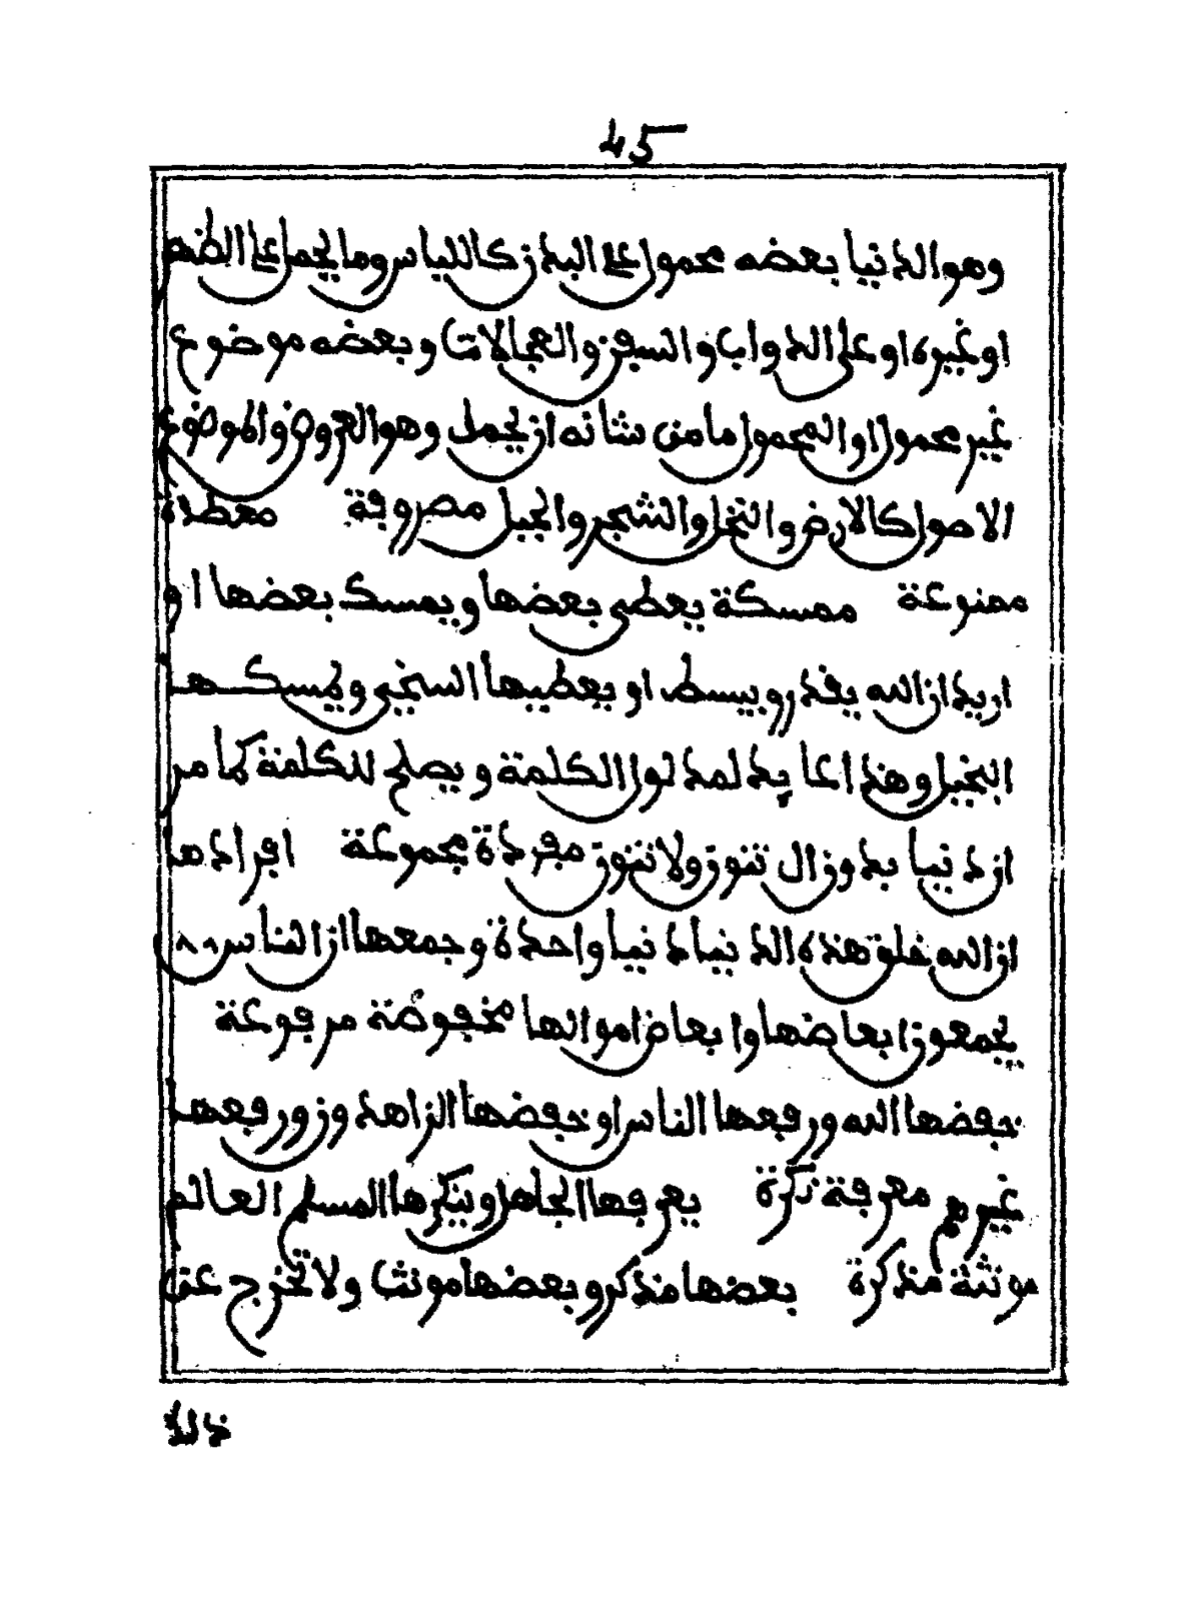 45
وهو الدنيا بعضه محمول على البدن كاللباس وما يحمل على الظهر
او غيره او على الدواب والسفن والعجالات وبعضه موضوع
غير محمول او المحمول ما من شانه ان يحمل وهو العروض والموضوع
الاصول كالارض والنخل والشجر والجبل مصروفة معطاة
ممنوعة ممسكة يعطى بعضها ويمسك بعضها او
اريد ان الله يقدر ويبسط او يعطيها السخي ويمسكها
البخيل وهذا انما يدل لمدلول الكلمة ويصلح للكلمة كما مر
ان دنيا بدون ال تنون ولا تنون مفردة مجموعة افرادها
ان الله خلق هذه الدنيا دنيا واحدة وجمعها ان الناس
يجمعون ابعاضها وابعاض اموالها مخفوضة مرفوعة
خفضها الله ورفعها الناس او خفضها الزاهدون ورفعها
غيرهم معرفة نكرة يعرفها الجاهل وينكرها المسلم العالم
مونثة مذكرة بعضها مذكر وبعضها مونث ولا تخرج عن
ذلك